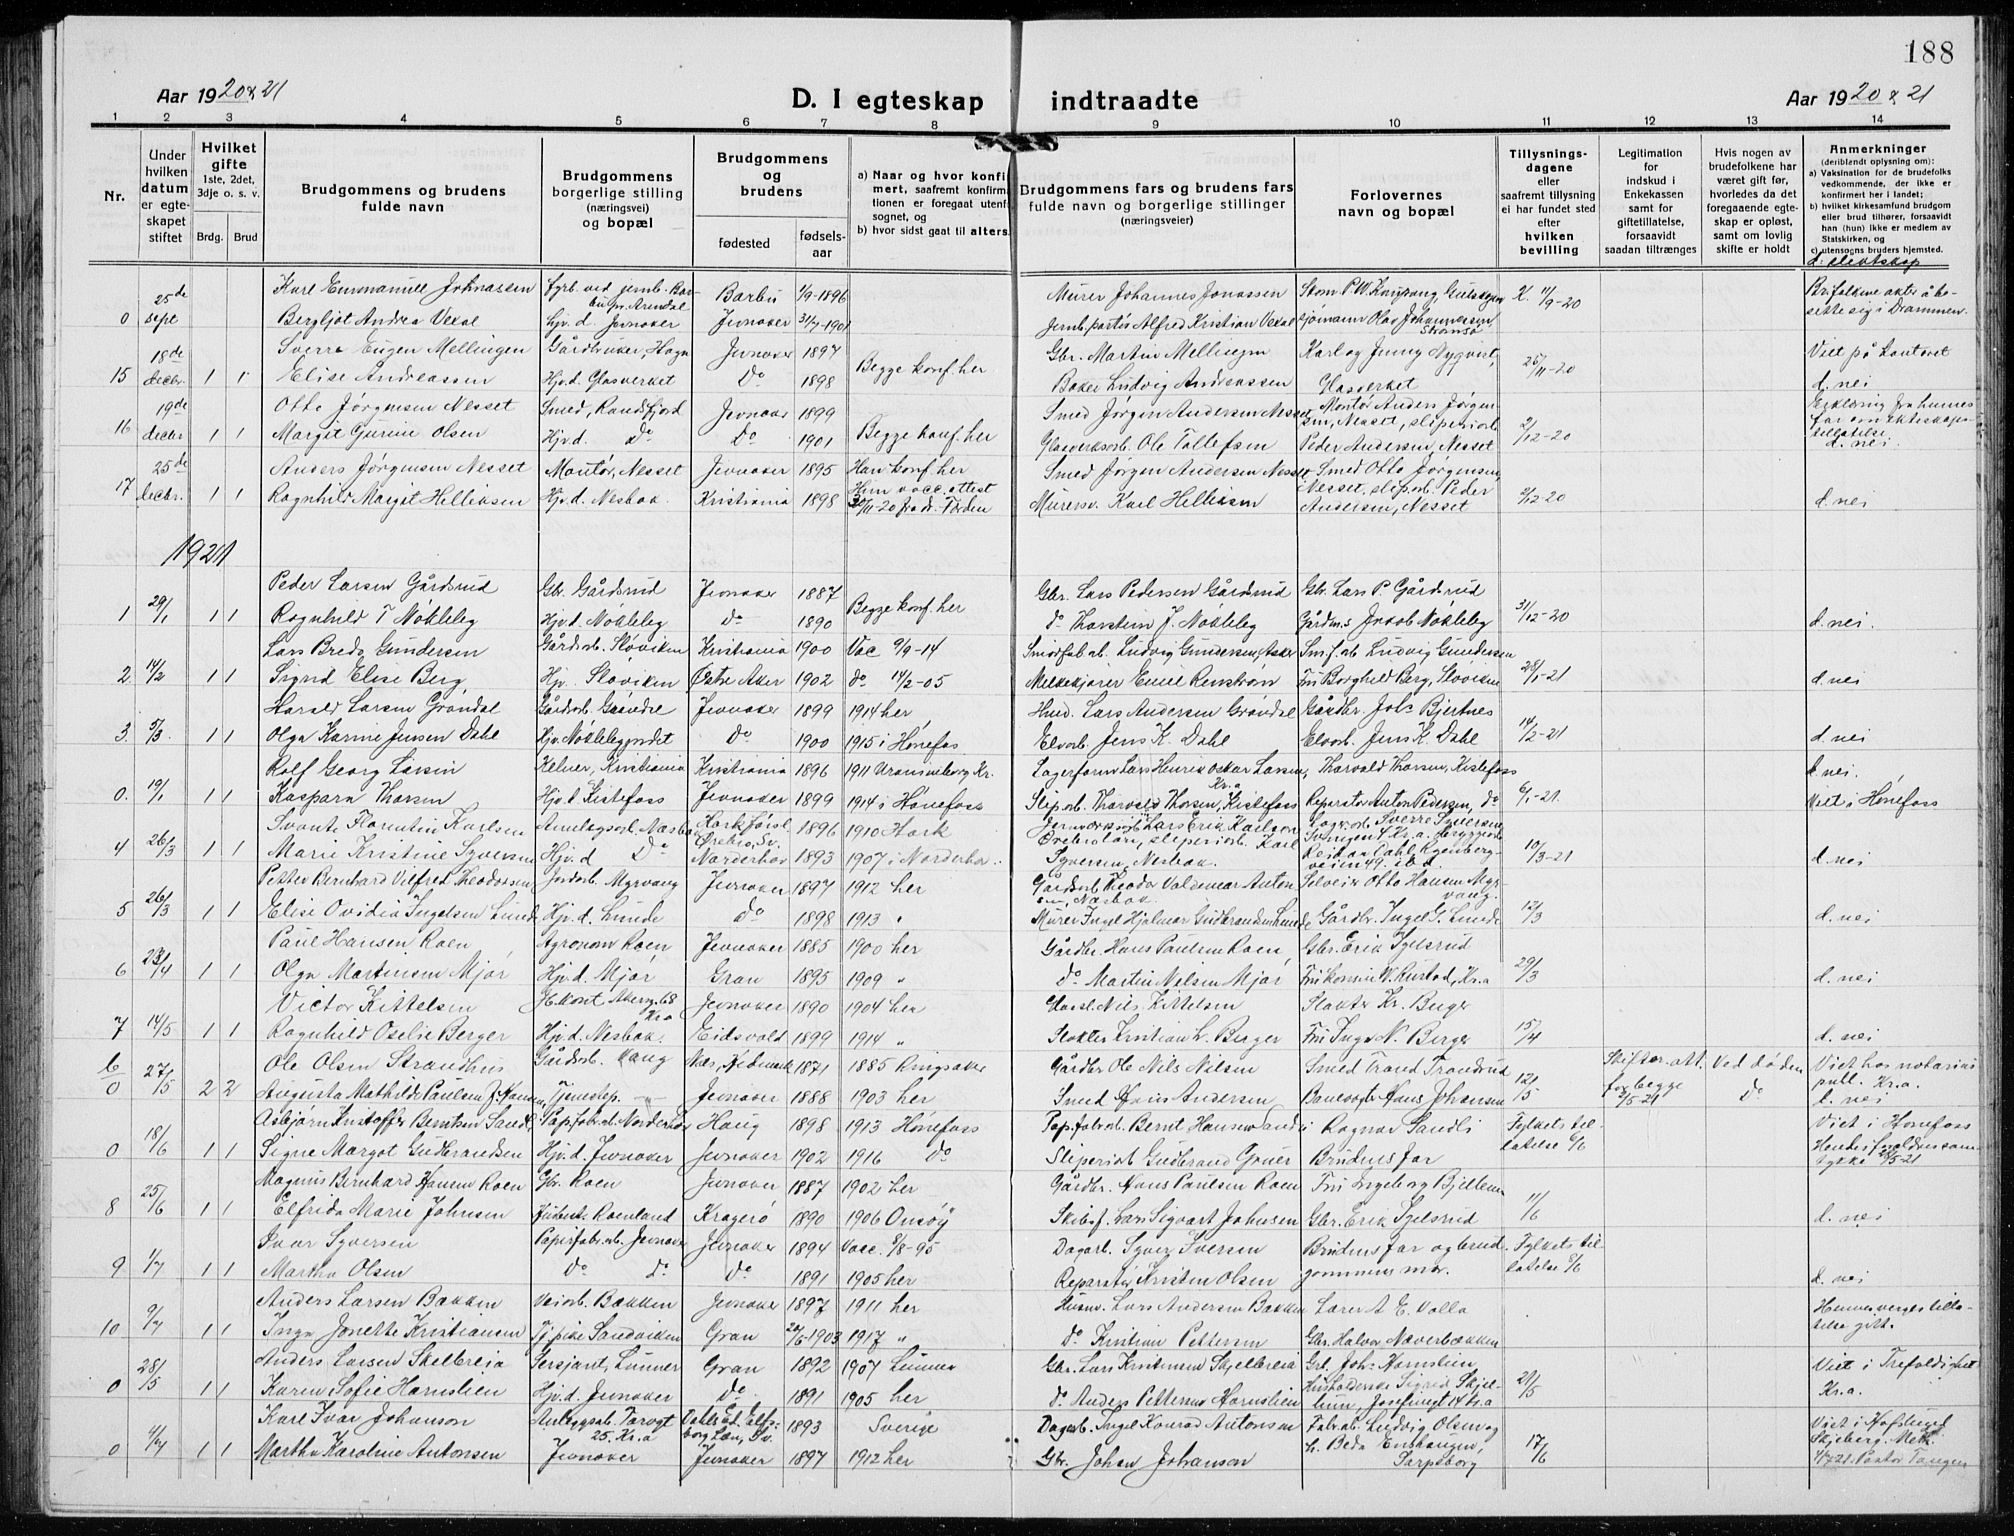 188
Aar 1920 & 21
D. I egteskap indtraadte
Aar 1920 & 21
1 2 3 4 5 6 7 8 9 10 11 12 13 14
Nr.
Under hvilken datum er egteskapet stiftet
Hvilket gifte 1ste, 2det, 3dje o. s. v.
Brdg. Brud
Brudgommens og brudens fulde navn
Brudgommens borgerlige stilling (næringsvei) og bopæl
Brudgommens og brudens
fødested fødselsaar
a) Naar og hvor konfi
mert, saafremt konfirma
tionen er foregaat utenf
sognet, og
b) hvor sidst gaat til alters.
Brudgommens fars og brudens fars fulde navn og borgerlige stillinger (næringsveier)
Forlovernes navn og bopæl
Tillysningsdagene eller saafremt tillysning ei har fundet sted efter hvilken bevilling
Legitimation for indskud i Enkekassen samt for giftetillatelse, forsaavidt saadan tiltrænges
Hvis nogen av brudefolkene har været gift før, hvorledes da det foregaaende egteskap er opløst, samt om lovlig skifte er holdt
Anmerkninger (deriblandt oplysning om):
a) Vaksination for de brudefolks vedkommende, der ikke er konfirmert her i landet;
b) hvilket kirkesamfund brudgom eller brud tilhører, forsaavidt han (hun) ikke er medlem av Statskirken, og
c) utensogns bruders hjemsted.
d. slektskap
0 25de sept Karl Emmanuell Johnassen Fyrb. ved jernb. Barbu pr. Arendal Barbu 1/9-1896 Murer Johannes Jonassen K. 11/9-20 Br.folkene akter å bosette sig i Drammen.
Bergljot Andrea Vexal Hjv. d. Jevnaker Jevnaker 31/7-1901 Alfred Kristian Vexal Strømsø
15 18de decbr. 1 1 Sverre Eugen Mellingen Gårdbruker, Hagn Jevnaker 1897 Begge konf. her Gbr. Martin Mellingen Karl og Jenny Nyqvist, 26/11-20 Viet på kontoret
Elise Andreassen Hjv. d. Glasverket Do 1898 Baker Ludvig Andreassen Glasverket d. nei
16 19de decbr 1 1 Otto Jørgensen Nesset Smed, Randsfjord Jevnaker 1899 Begge konf. her Smed Jørgen Andersen Nesset, Montør Anders Jørgensen, Nesset, sliperiarb. 2/12-20
Margit Gurine Olsen Hjv. d. Do Do 1901 Glasverksarb. Ole Tollefsen Peder Andersen, Nesset d. nei.
17 25de decbr. 1 1 Anders Jørgensen Nesset Montør, Nesset Jevnaker 1895 Han konf. her Smed Jørgen Andersen Nesset, Smed Otto Jørgensen,
Ragnhild Margit Helliksen Hjv. d. Nesbak Kristiania 1898 Hun vacc. attest 30/11-20 fra dr. Forden Murersv. Karl Helliksen Nesset, slip.arb. Peder Andersen, Nesset 2/12-20 d. nei
1921
1 29/1 1 1 Peder Larsen Gårdsrud Gbr. Gårdsrud Jevnaker 1887 Begge konf. her Gbr. Lars Pedersen Gårdsrud Gbr. Lars P. Gårdsrud 31/12-20
Ragnhild T Nøkleby Hjv. d. Nøkleby do 1890 do Thorstein J. Nøkleby Gårdm.s Jacob Nøkleby d. nei.
2. 14/2 1 1 Lars Breda Gundersen Gårdsarb. Sløviken Kristiania 1900 Vac 9/9-14 Ludvig Gundersen, Asker Sm.f.arb Ludvig Gundersen
Signe Elise Berg Hjv. Sløviken Østre Aker 1902 do 14/2-05 Melkekjører Emil Renstrøm Frk Borghild Berg, Sløviken 28/1-21 d. nei
3. 5/3. 1 1 Harald Larsen Grøndal Gårdsarb. Jevnaker 1899 1914 her Husm. Lars Andersen Grøndal Gårdbr. Johs Bjertnes 14/2-21
Olga Karine Jensen Dahl Hjv. Do 1900 1915 i Hønefos Elvarb. Jens K. Dahl Elvarb. Jens K. Dahl d. nei
0. 19/1 1 1 Rolf Georg Larsen Kelner, Kristiania Kristiania 1896 1911 Uranienborg Kr. Lagerform Lars Henrik Oskar Larsen, Kr.a Thorvald Thorsen, Kistefoss d. nei.
Kaspara Thorsen Hjv. d Kistefoss Jevnaker 1899 1914 i Hønefoss Slip.arb. Thorvald Thorsen, Kistefoss Reparatør Anton Pedersen, do 6/1-21. Viet i Hønefoss
4 26/3 1 1 Svante Florentin Karlsen Anlegsarb. Nesbak Örebro, Sv. 1896 1910 Hork Lars Erik Karlson Sverre Syversen
Marie Kristine Syversen Hjv. d Do Norderhov 1893 1907 i Norderhov Karl Syversen, Nesbak. 10/3-21 d. nei
5 26/3 1 1 Petter Bernhard Vilfred Theodorsen Jordarb. Myrvang Jevnaker 1897 1912 her Gårdsarb Theodor Valdemar Antonsen, Nesbak Selveier Otto Hansen Myrvang.
Elise Ovidia Ingelsen Lunde Hjv. d. Lunde do. 1898 1913 " Murer Ingel Hjalmar Gudbrandsen Lunde Gårdbr. Ingel G. Lunde 12/3 d. nei
6 23/4 1 1 Paul Hansen Roen Agronom Roen Jevnaker 1885 1900 her Gårdbr. Hans Paulsen Roen Gbr. Erik Igelsrud 29/3
Olga Martinsen Mjør Hjv. d. Mjør Gran 1895 1909 " do Martin Nelsen Mjør Rustad, Kr.a d. nei
7 14/5 1 1 Victor Kittelsen Akersg. 68 Kr.a Jevnaker 1890 1904 her Nils Kittelsen Slakter Kr. Berger 15/4
Ragnhild Oselie Berger Hjv. d. Nesbak. Eidsvold 1899 1914 " Slakter Kristian L. Berger Frk Inga N. Berger d. nei
b/0 27/5 2 2 Ole Olsen Strandhus Gårdsarb. Vang Næs, Hedemark 1871 1885 Ringsaker Gårdbr Ole Nils Nilsen Smed Trond Trondrud 12/5 Skifter.att. for begge 3/5-21 Ved døden Viet hos notarius publ. Kr.a.
Augusta Mathilde Paulsen f. Hansen, Tjenstep. Jevnaker 1888 1903 her Smed Hans Andersen Banevogt Hans Johansen Do d. nei
0 18/6 1 1 Asbjørn Kristoffer Berntsen Sandli Pap.fabr.arb. Norderhov Haug 1898 1913 Hønefoss Pap.fabr.arb. Bernt Hansen Sandli Ragnar Sandli Fylkets tillatelse 6/6 Viet i Hønefoss
Signe Margot Gudbrandsen Hjv. d. Jevnaker Jevnaker 1902 1916 do Sliperiarb Gudbrand Brudens far
8 25/6 1 1 Magnus Bernhard Hansen Roen Gbr. Roen Jevnaker 1887 1902 her Gårdbr. Hans Paulsen Roen Frk Ingeborg 11/6
Elfrida Marie Johnsen Roenland Kragerø 1890 1906 Onsøy Skibsf. Lars Sigvart Johnsen Gbr. Erik Igelsrud d. nei
9 1/7 1 1 Ivar Syversen Papirfabr.arb. Jevnaker Jevnaker 1894 Vacc. 8/8-95 Dagarb. Syver Iversen Brudens far og brudgommens mor. Fylkets tillatelse 8/6
Martha Olsen do do. do 1891 1905 her Reparatør Kristen Olsen d. nei
10 9/7 1 1 Anders Larsen Bakken Veiarb. Bakken Jevnaker 1897 1911 her Husm. Lars Andersen Bakken Lærer A. E. Volla Hennes verges tillatelse gitt.
Inga Jonette Kristiansen Tj.pike Sandviken Gran 1903 1917 " do Kristian Pettersen Gbr. Halvor Næverbakken
0 28/5 1 1 Anders Larsen Skelbreia Sersjant, Lunner Gran 1892 1907 Lunner Gbr. Lars Kristensen Skjelbreia Gbr. Johs Harnslien, 21/5 Viet i Trefoldighet Kr.a.
Karen Sofie Harnslien Hjv. d. Jevnaker do. 1891 1905 her do. Anders Pettersen Harnslien
0 4/7 1 1 Karl Ivar Johanson Anleggsarb. Torvgt 25. Kr.a Dahls Ed, Elfsborg Län, Sv. 1893 Sverige Dagarb. Ingel Konrad Antonsen Fabr.ab. Ludvig Olsen og Viet i Hafslund Skjeberg.
Martha Karoline Antonsen Jevnaker Jevnaker 1897 1912 her Gbr. Johan Johanson Sarpsborg 17/6 Pastor Tangen